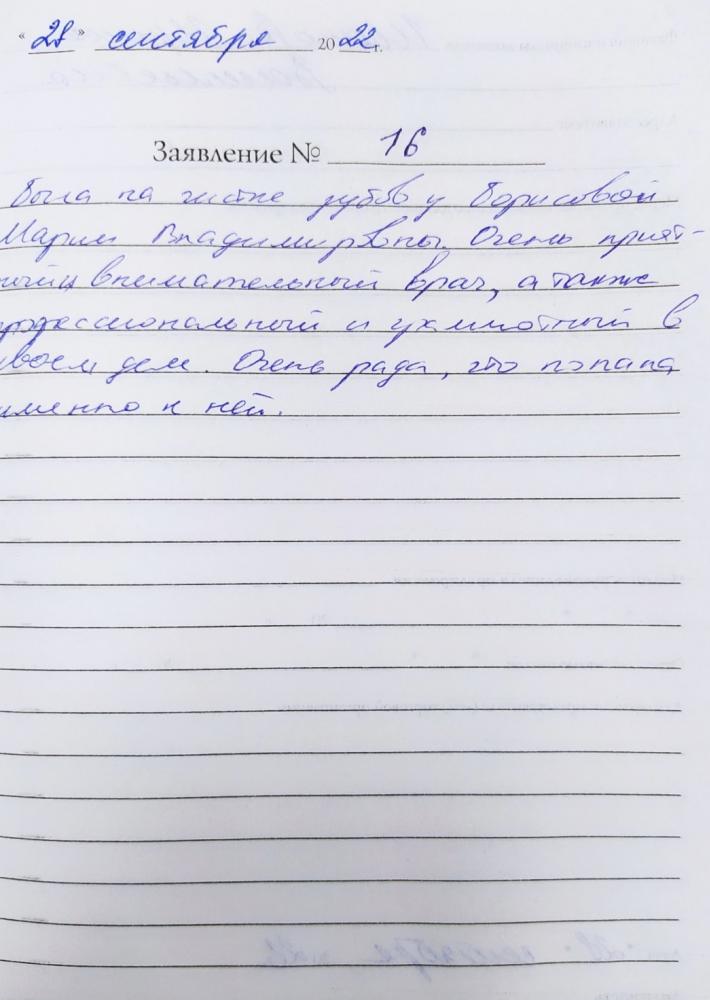 « 28 » сентября 2022 г.
Заявление № 16
Была на чистке зубов у Борисовой
Марии Владимировны. Очень прият-
ный и внимательный врач, а также
профессиональный и грамотный в
своем деле. Очень рада, что попала
именно к ней.